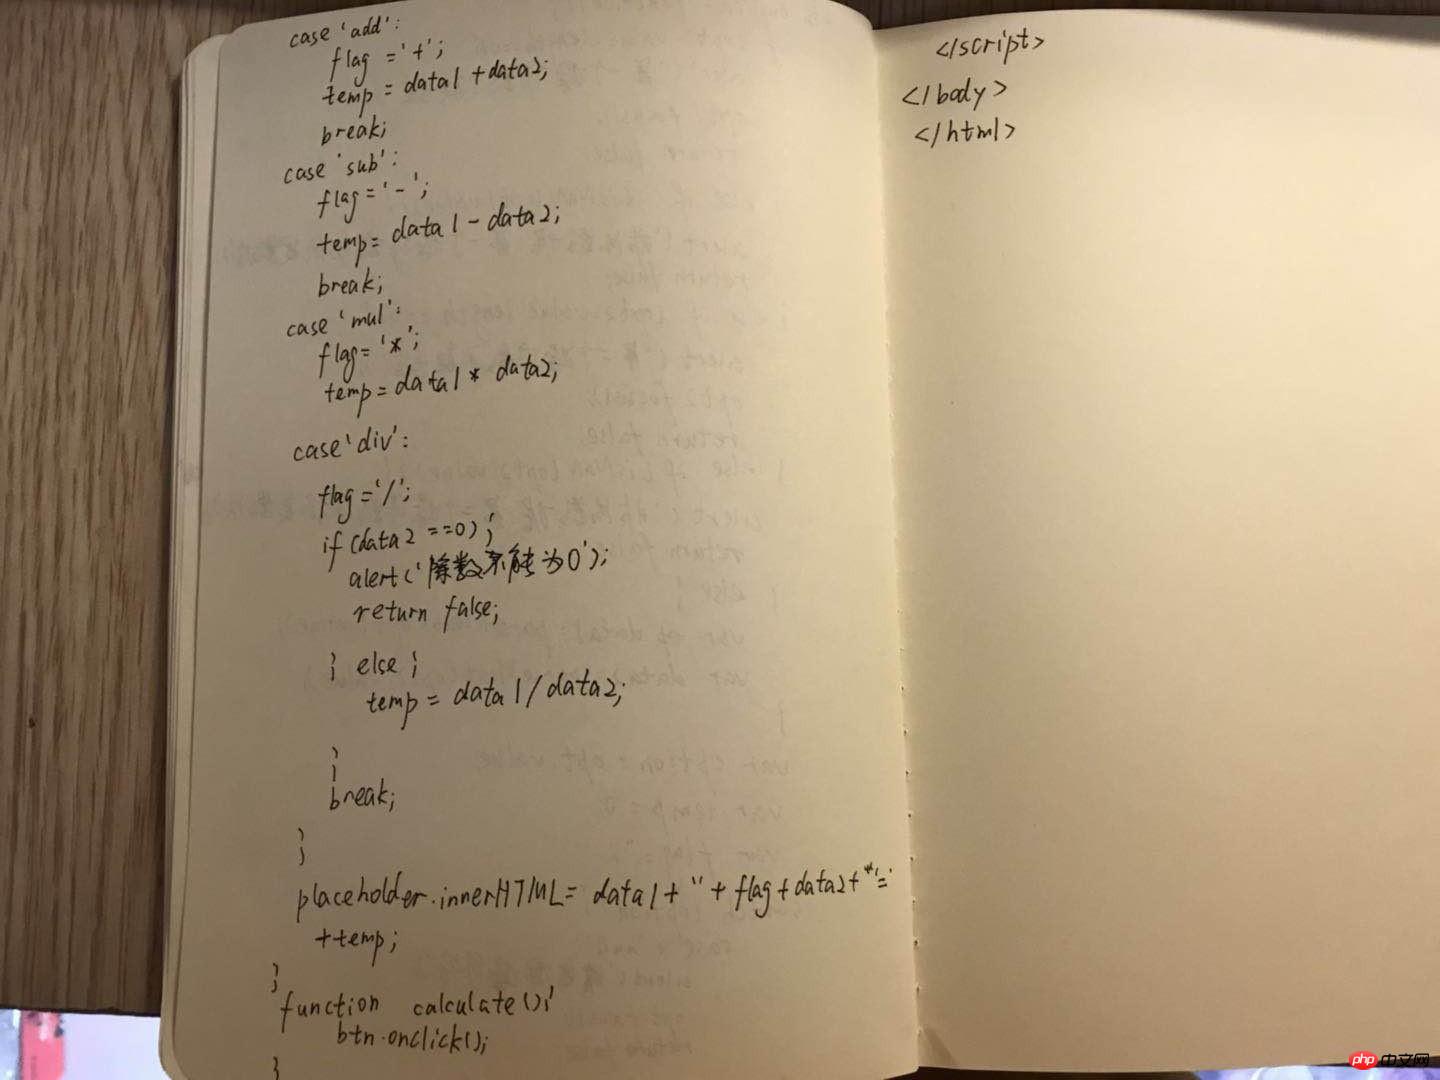 case 'add':
flag = '+';
temp = data1 + data2;
break;
case 'sub':
flag = '-';
temp = data1 - data2;
break;
case 'mul':
flag = '*';
temp = data1 * data2;
case 'div':
flag = '/';
if (data2 ==0) {
alert('除数不能为0');
return false;
} else {
temp = data1 / data2;
}
break;
}
placeholder.innerHTML = data1 + '' + flag + data2 + '='
+temp;
}
function calculate(){
btn.onclick();
}
</script>
</body>
</html>
php 中文网